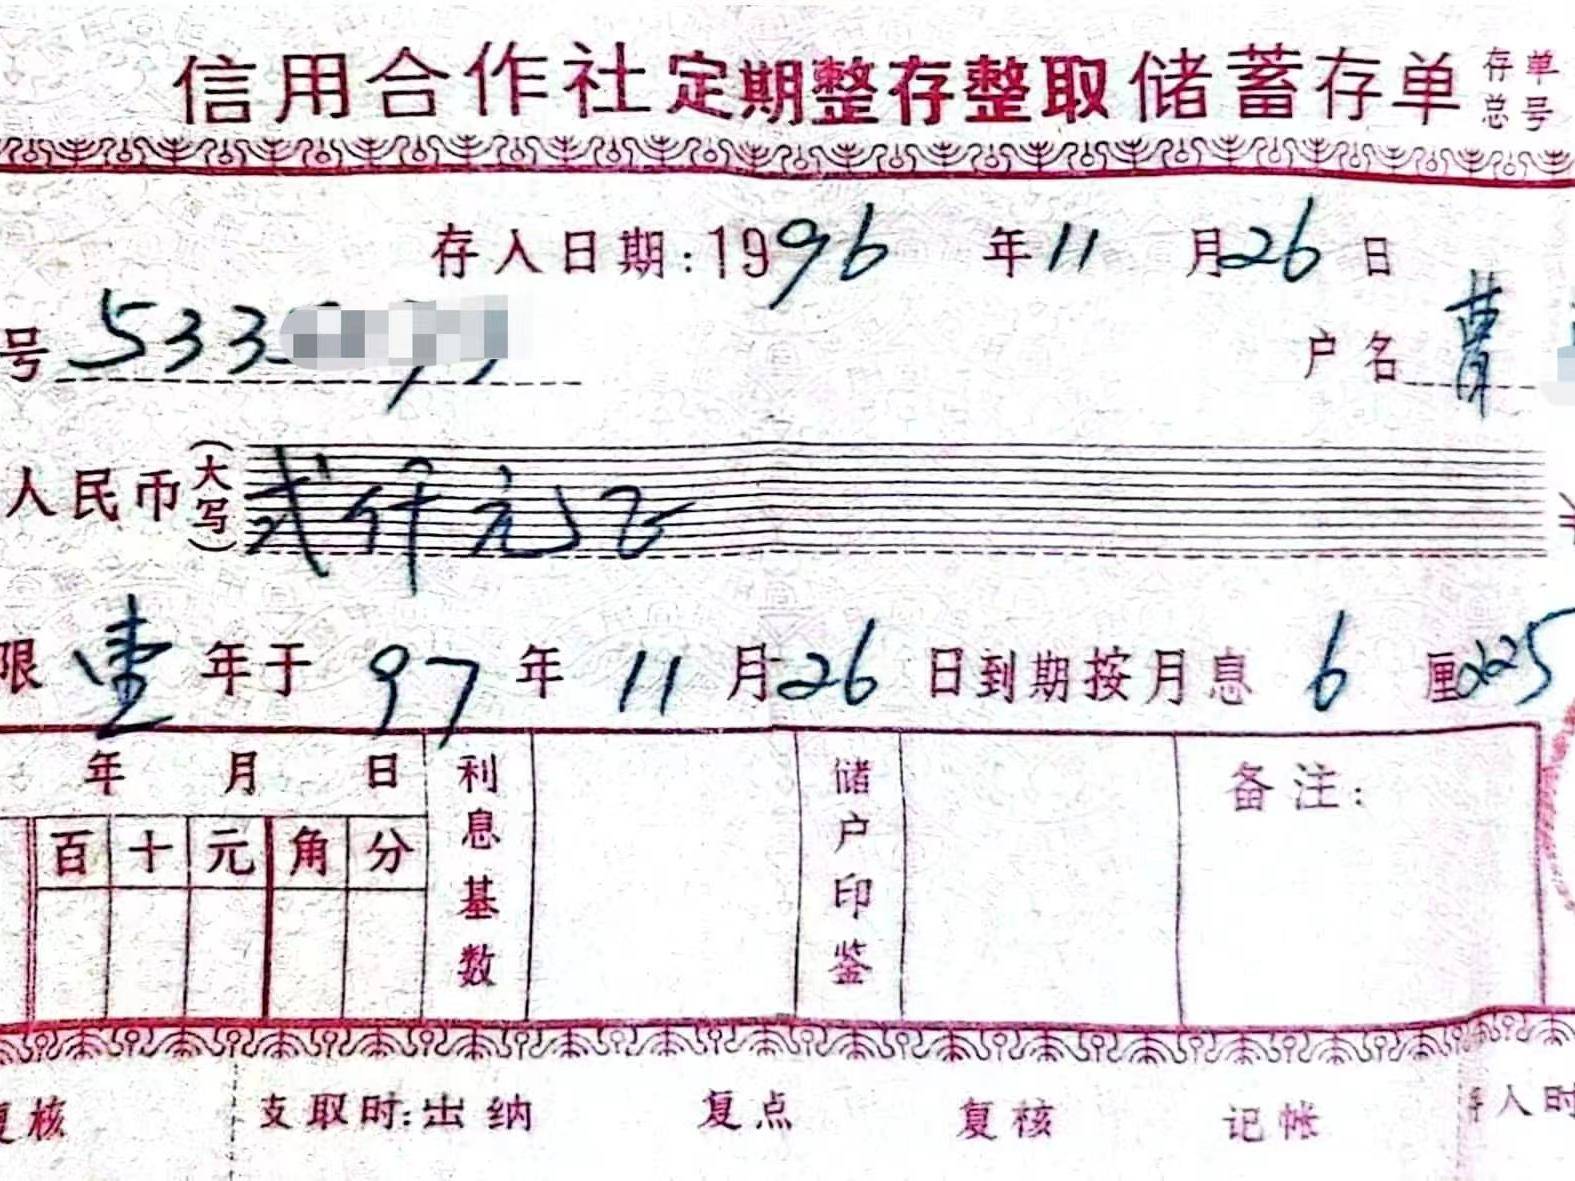 信用合作社定期整存整取储蓄存单 存单总号
存入日期:1996年11月26日
号 533
户名 曹
人民币(大写)贰仟元正
限壹年于97年11月26日到期按月息6厘225
年 月 日
百 十 元 角 分
利息基数
储户印鉴
备注:
复核 支取时:出纳 复点 复核 记帐 存入时